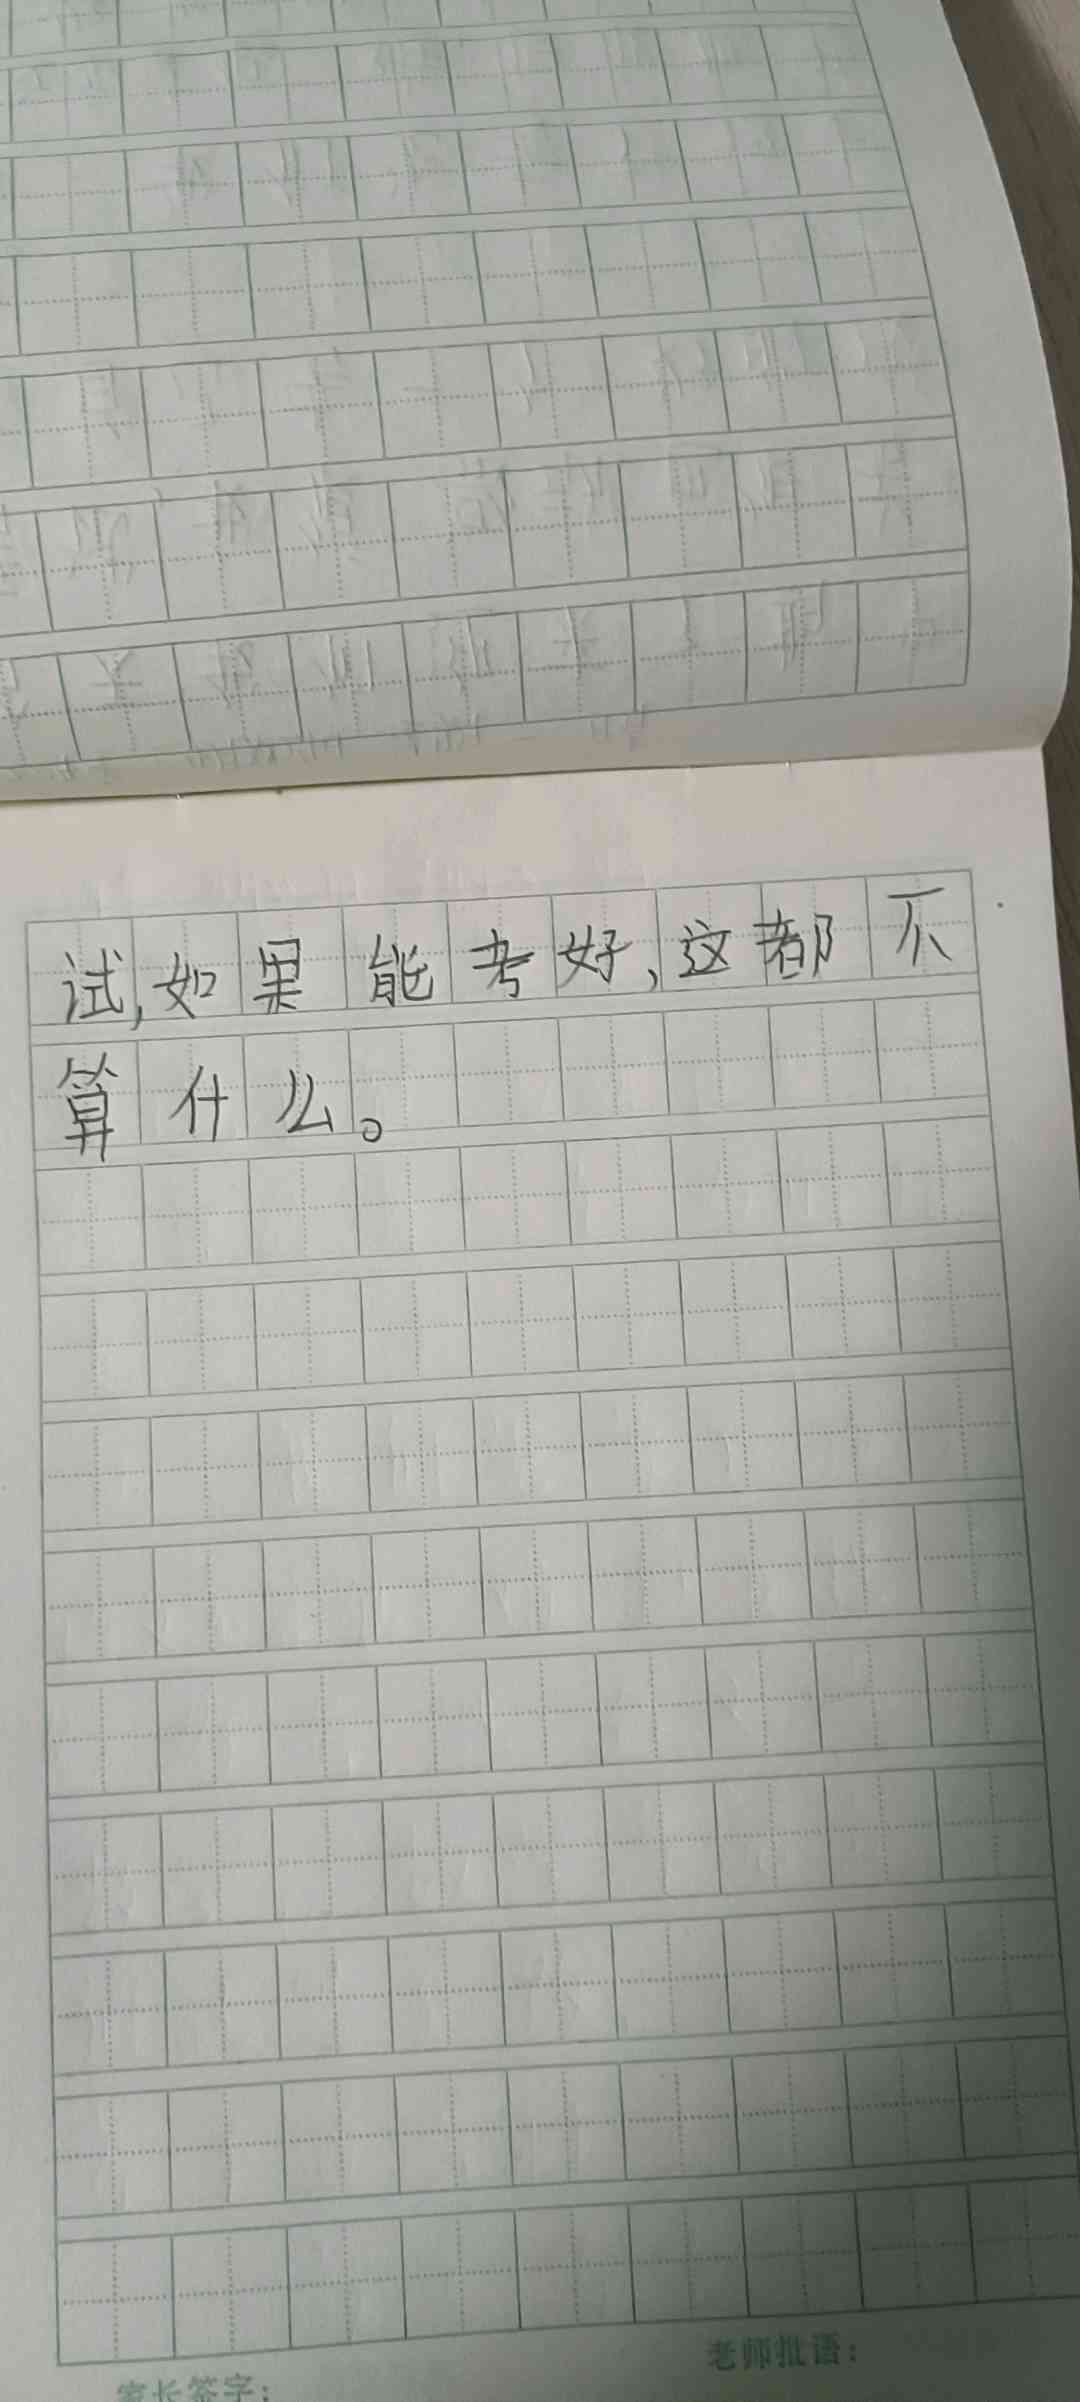 试,如果能考好,这都不
算什么。
老师批语:
家长签字: